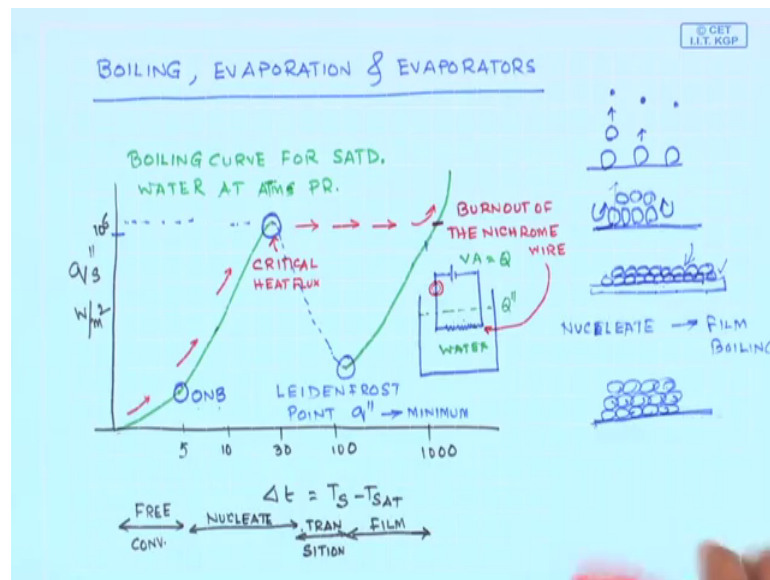 © CET
I.I.T. KGP
BOILING, EVAPORATION & EVAPORATORS
BOILING CURVE FOR SATD.
WATER AT ATMS PR.
10⁶
q"s
W/m²
CRITICAL
HEAT FLUX
BURNOUT OF
THE NICHROME
WIRE
VA = Q
Q"
WATER
ONB
LEIDENFROST
POINT q" → MINIMUM
NUCELEATE → FILM
BOILING
5 10 30 100 1000
Δt = Ts - TSAT
FREE
CONV.
NUCLEATE
TRAN
SITION
FILM